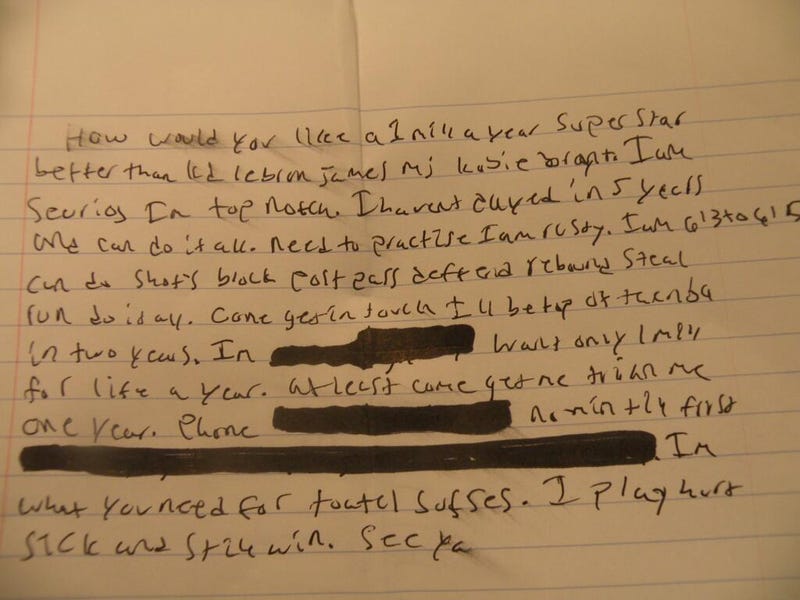 How would you like a 1 mill a year super star
better than kd lebron james mj kobie I am
Seurios Im top notch. I havent played in 5 years
and can do it all. need to practise I am rusty. I am 6'3 to 6'5
can do shot's block post pass deffend rebound steal
run do it all. Come get in touch I ll be top of the nba
in two years. Im want only 1 mill
for life a year. at least come get me trian me
one year. Phone first
Im
what you need for toatel sufses. I play hurt
sick and still win. See ya